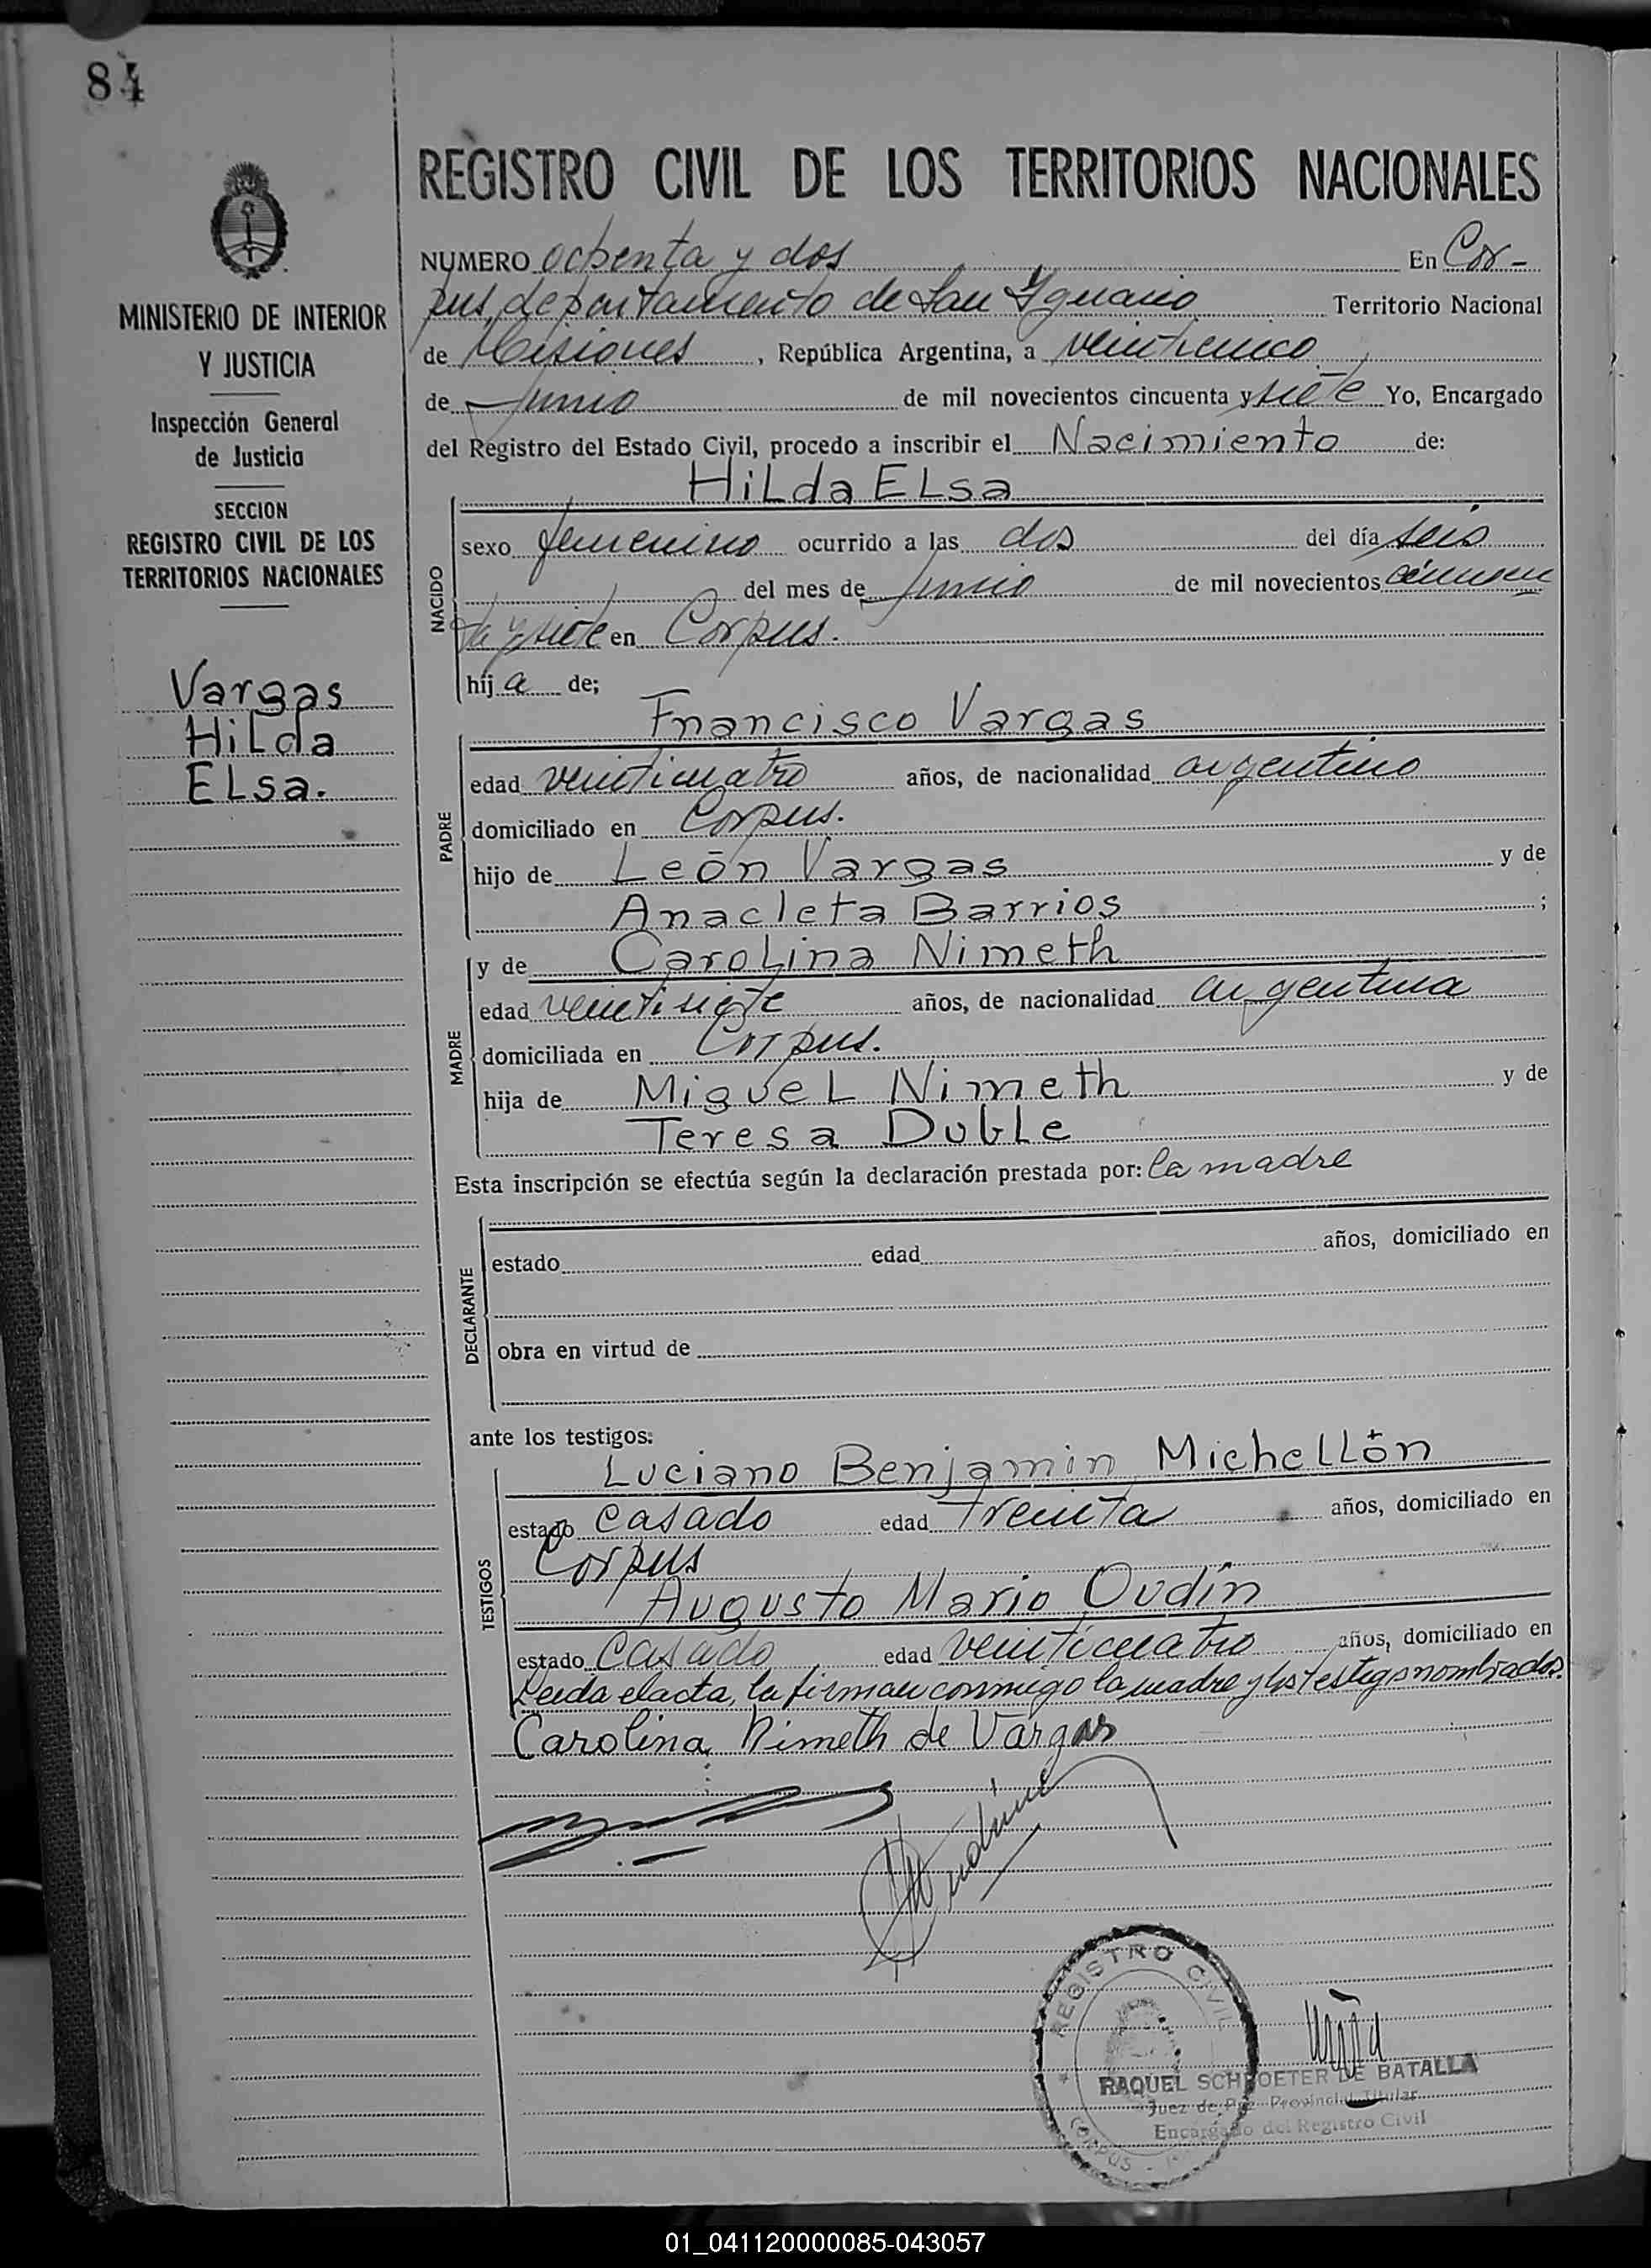 84
MINISTERIO DE INTERIOR
Y JUSTICIA
Inspección General
de Justicia
SECCION
REGISTRO CIVIL DE LOS
TERRITORIOS NACIONALES
Vargas
Hilda
Elsa.
REGISTRO CIVIL DE LOS TERRITORIOS NACIONALES
NUMERO ochenta y dos En Cor-
pus, departamento de San Ygnacio Territorio Nacional
de Misiones, República Argentina, a veinticinco
de junio de mil novecientos cincuenta y siete Yo, Encargado
del Registro del Estado Civil, procedo a inscribir el Nacimiento de:
Hilda Elsa
NACIDO
sexo femenino ocurrido a las dos del día seis
del mes de junio de mil novecientos cincuen
ta y siete en Corpus.
hij a de;
Francisco Vargas
PADRE
edad veinticuatro años, de nacionalidad argentino
domiciliado en Corpus.
hijo de León Vargas y de
Anacleta Barrios ;
y de Carolina Nimeth
MADRE
edad veintisiete años, de nacionalidad argentina
domiciliada en Corpus.
hija de Miguel Nimeth y de
Teresa Duble
Esta inscripción se efectúa según la declaración prestada por: la madre
DECLARANTE
estado edad años, domiciliado en
obra en virtud de
ante los testigos:
Luciano Benjamin Michellón
TESTIGOS
estado casado edad treinta años, domiciliado en
Corpus
Augusto Mario Oudín
estado casado edad veinticuatro años, domiciliado en
Leida el acta, la firman conmigo la madre y los testigos nombrados.
Carolina Nimeth de Vargas
REGISTRO CIVIL
CORPUS
RAQUEL SCHROETER DE BATALLA
Juez de Paz Provincial Titular
Encargado del Registro Civil
01_041120000085-043057